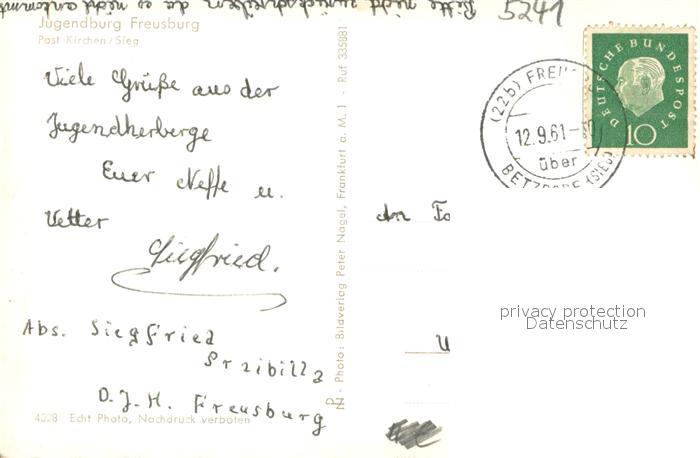 Bitte nicht zurückschreiben da es nicht ankommt
5241
Jugendburg Freusburg
Post Kirchen/Sieg
Viele Grüße aus der
Jugendherberge
Euer Neffe u.
Vetter
Siegfried.
Abs. Siegfried
Przibilla
D.J.H. Freusburg
4328 Echt Photo, Nachdruck verboten
N - Photo: Bildverlag Peter Nagel, Frankfurt a. M. 1 - Ruf 335881
DEUTSCHE BUNDESPOST
10
(22b) FREU
12.9.61-
über
BETZDORF (SIEG)
An Fa
privacy protection
Datenschutz